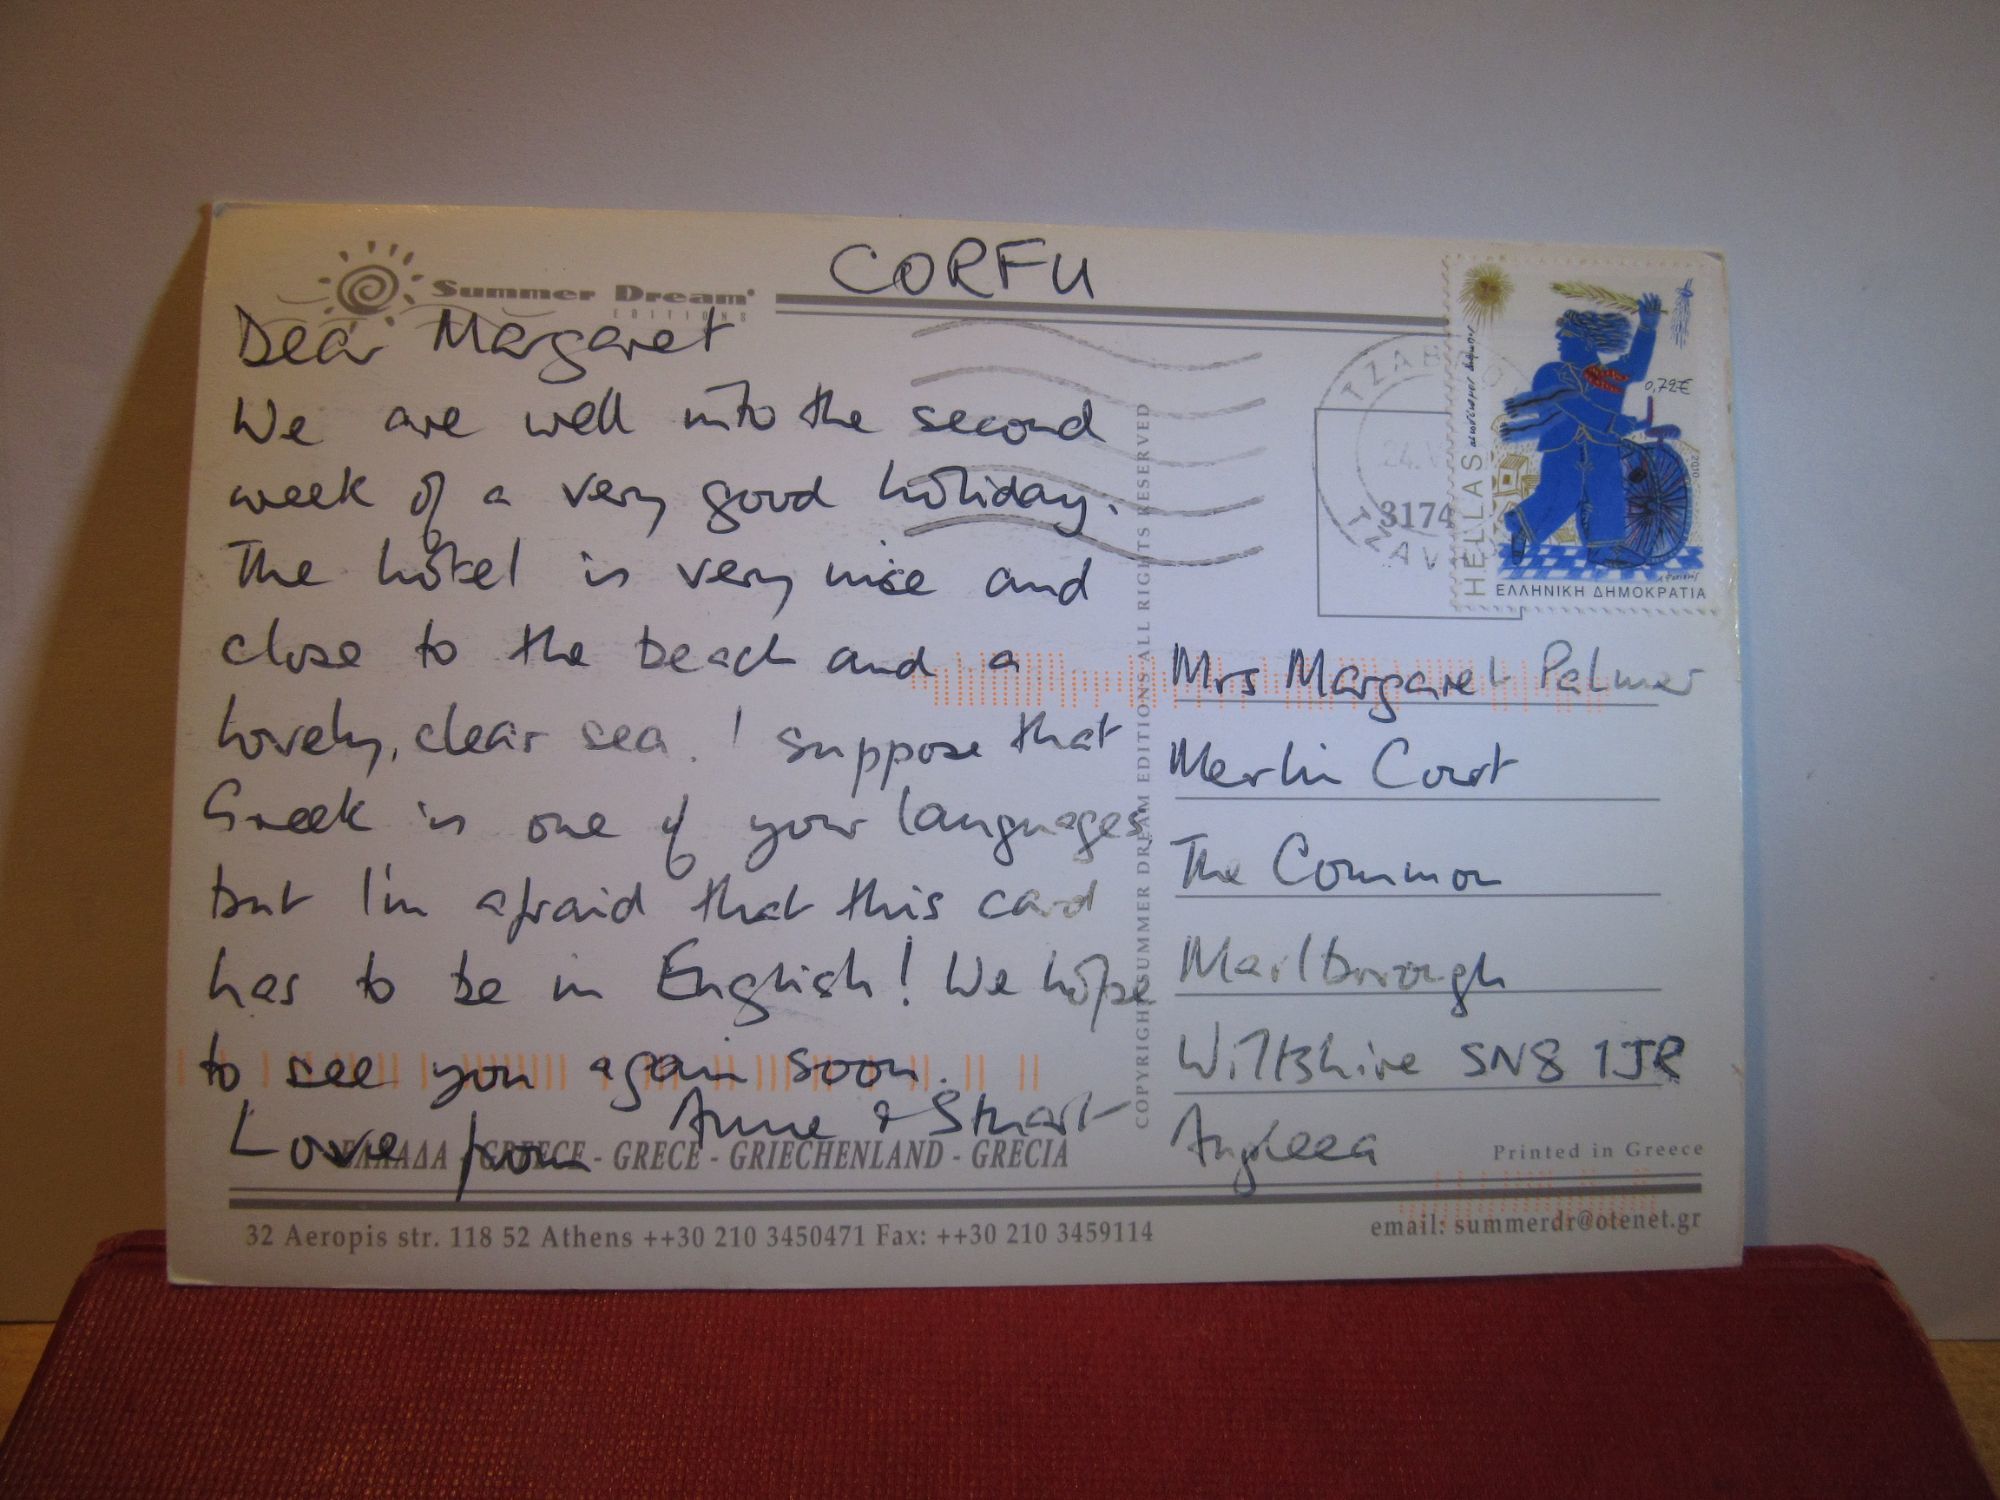 CORFU
Summer Dream
EDITIONS
Dear Margaret
We are well into the second
week of a very good holiday.
The hotel is very nice and
close to the beach and a
lovely, clear sea. I suppose that
Greek is one of your languages
but I'm afraid that this card
has to be in English! We hope
to see you again soon.
Love from Anne & Stuart
ΕΛΛΑΔΑ - GREECE - GRECE - GRIECHENLAND - GRECIA
32 Aeropis str. 118 52 Athens ++30 210 3450471 Fax: ++30 210 3459114
COPYRIGHT SUMMER DREAM EDITIONS-ALL RIGHTS RESERVED
3174
HELLAS
0,72€
2010
ΕΛΛΗΝΙΚΗ ΔΗΜΟΚΡΑΤΙΑ
Mrs Margaret Palmer
Merlin Court
The Common
Marlborough
Wiltshire SN8 1JR
Angleea
Printed in Greece
email: summerdr@otenet.gr